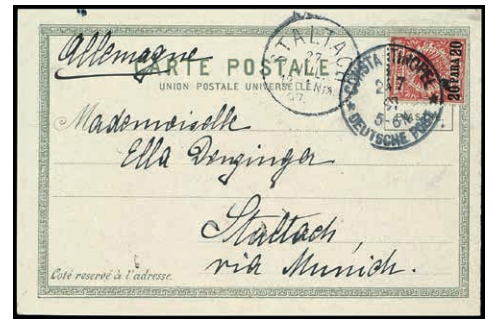 Allemagne
CARTE POSTALE
UNION POSTALE UNIVERSELLE
STALTACH
27
CONSTANTINOPEL
24 7
5-6
DEUTSCHE POST
20 PARA 20
Mademoiselle
Ella Denzinger
Staltach
via Munich.
Côté reservé à l'adresse.